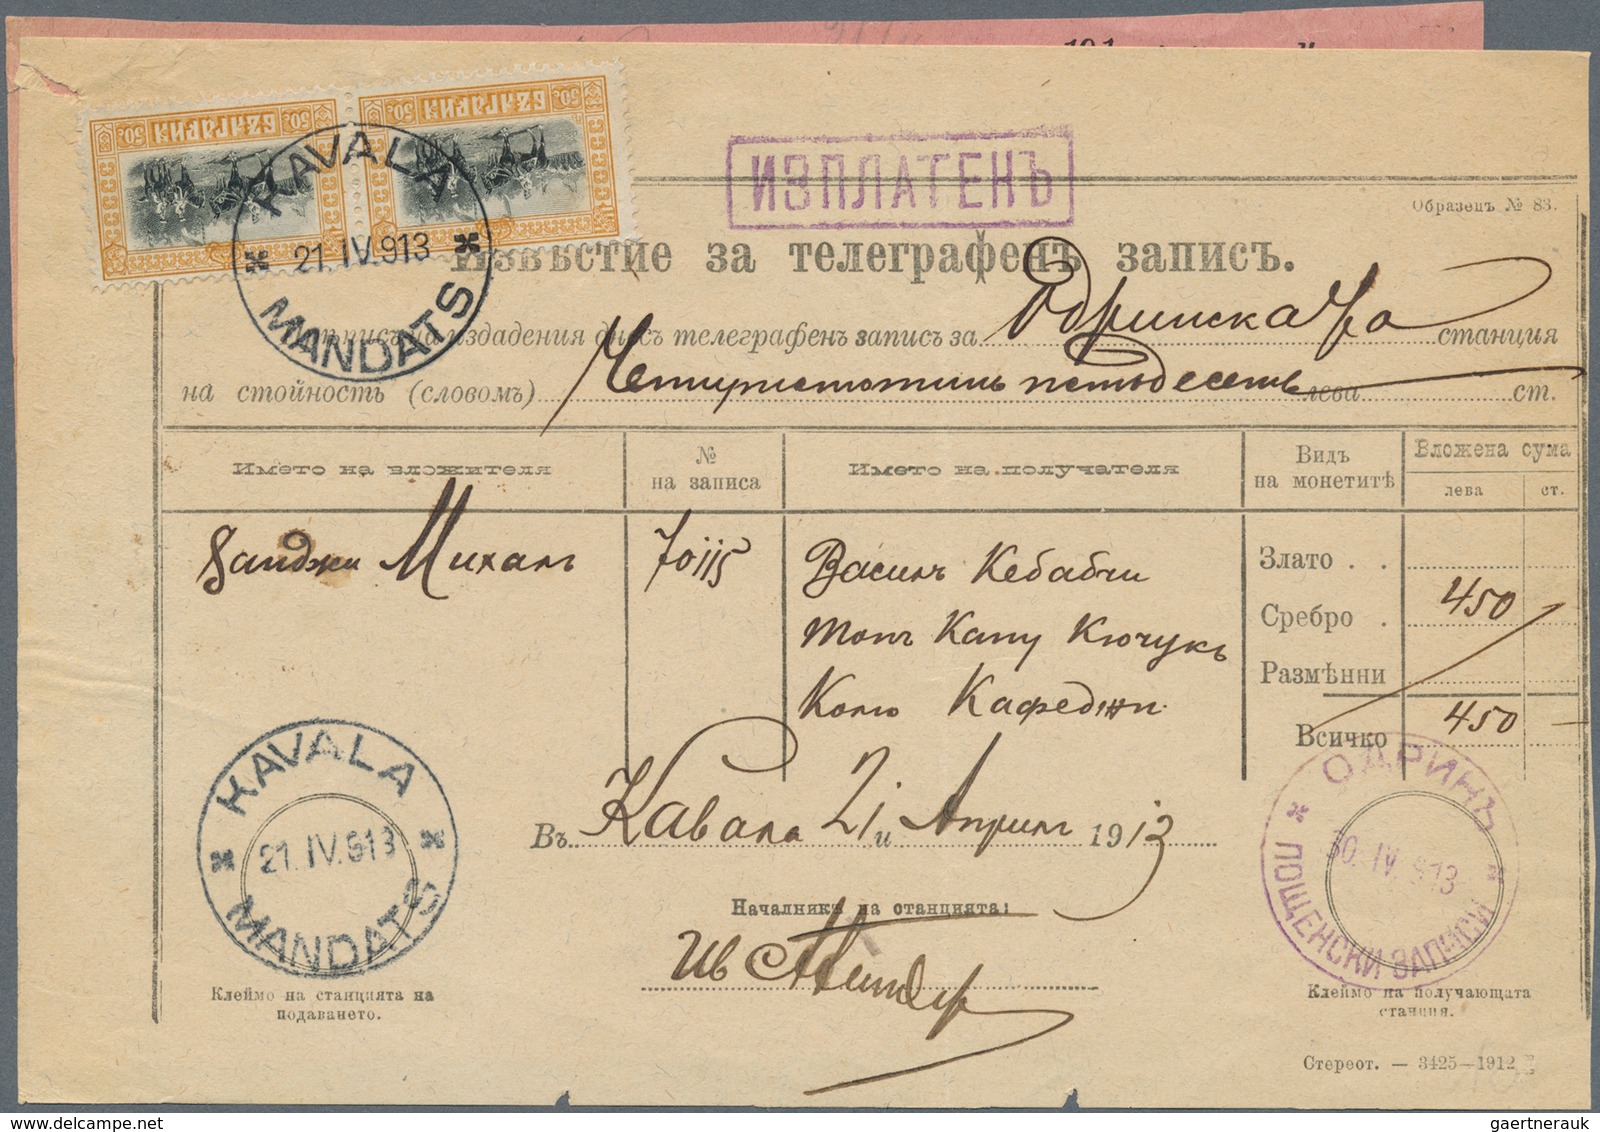 50. БЪЛГАРИЯ 50.
50. БЪЛГАРИЯ 50.
KAVALA
21. IV. 913
MANDATS
ИЗПЛАТЕНЪ
Образецъ № 83.
Извѣстие за телеграфенъ записъ.
издадения днесъ телеграфенъ записъ за Одринска Ч/ра станция
на стойность (словомъ) Четиристотинъ петьдесеть лева ст.
Името на вложителя
№ на записа
Името на получателя
Видъ на монетитѣ
Вложена сума
лева ст.
Михалъ
70115
Василъ Кебабчи
Топъ Капу Кючукъ
Колю Кафеджи
Злато . .
Сребро . 450
Размѣнни
Всичко 450
Въ Кавала 21 и Априлъ 1913
Началникъ на станцията:
Ив
KAVALA
21. IV. 913
MANDATS
Клеймо на станцията на
подаването.
ОДРИНЪ
30. IV. 913
ПОЩЕНСКИ ЗАПИСИ
Клеймо на получающата
станция.
Стереот. — 3425—1912
gaertnerauk